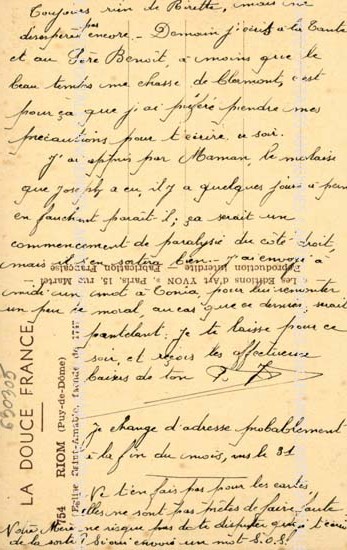 Toujours rien de Pirette, mais ne
désespérez pas encore. Demain j'écris à la Tante
et au Père Benoît, à moins que le
beau temps me chasse de Clermont, c'est
pour ça que j'ai préféré prendre mes
précautions pour t'écrire ce soir.
J'ai appris par Maman, le malaise
que Joseph a eu, il y a quelques jours à peine
en fauchant paraît il ; ça serait un
commencement de paralysie du côté droit,
mais il s'en sortira bien. J'ai envoyé à
midi un mot à Tonia, pour lui remonter
un peu le moral, au cas que ce dernier serait
pantelant. Je te laisse pour ce
soir, et reçois les affectueux
baisers de ton
Je change d'adresse probablement
à la fin du mois, vers le 31
Ne t'en fais pas pour les cartes,
elles ne sont pas prêtes de faire faute.
Notre Mère ne risque pas de te disputer que je t'écrive
de la sorte ? Si oui envoie un mot S.O.S!
Les Editions d'Art YVON, Paris, 15, rue Martel
Reproduction interdite - Fabrication Française
LA DOUCE FRANCE
754 RIOM (Puy-de-Dôme)
Eglise Saint-Amable, façade de 1747
630305